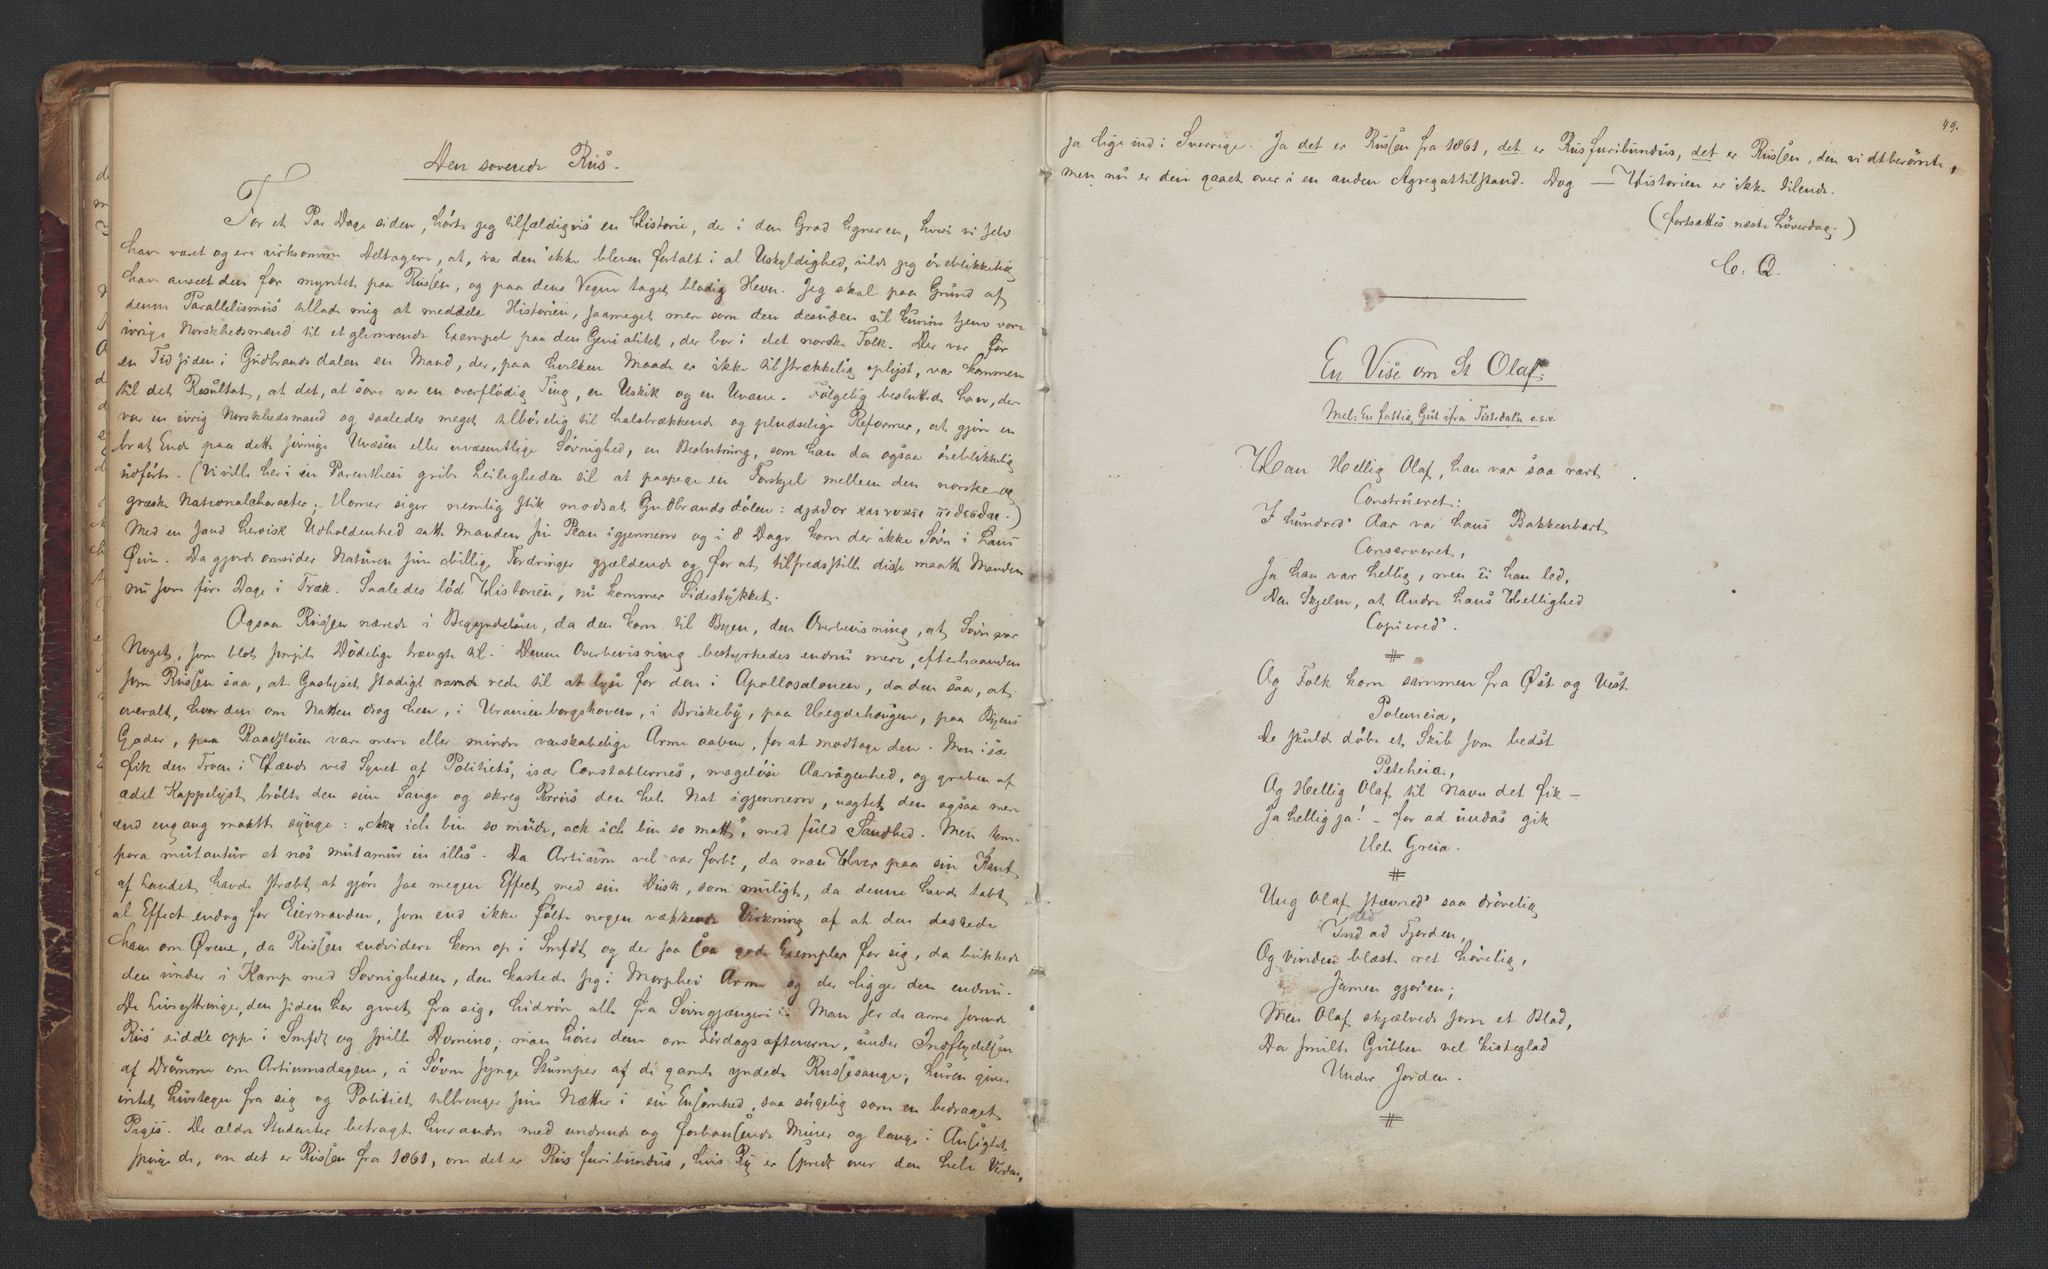 Den sovende Rus.
For et Par Dage siden, hørte jeg tilfældigvis en Historie, der i den Grad ligner en, hvori vi selv
have været og ere virksomme Deltagere, at, var den ikke bleven fortalt i al Uskyldighed, vilde jeg øieblikkelig
have anseet den for myntet paa Russen, og paa dens Vegne taget blodig Hevn. Jeg skal paa Grund af
denne Parallelismus tillade mig at meddele Historien, saameget mere som den desuden vil kunne tjene vore
ivrige Norskhedsmænd til et glimrende Exempel paa den Genialitet, der bor i det norske Folk. Der var for
en Tid siden i Gudbrandsdalen en Mand, der, paa hvilken Maade er ikke tilstrækkelig oplyst, var kommen
til det Resultat, at det, at sove var en overflødig Ting, en Uskik og en Uvane. Følgelig besluttede han, der
var en ivrig Norskhedsmand og saaledes meget tilbøielig til halsbrækkende og pludselige Reformer, at gjøre en
brat Ende paa dette søvnige Uvæsen eller uvæsentlige Søvnighed, en Beslutning, som han da ogsaa øieblikkelig
udførte. (Vi ville her i en Parenthesi gribe Leiligheden til at paapege en Forskjel mellem den norske og
græske Nationalcharacter; Homer siger nemlig stik modsat Gudbrandsdølen:
Med en sand heroisk Udholdenhed satte Manden sin Plan igjennem og i 8 Dage kom der ikke Søvn i hans
Øine. Da gjorde omsider Naturen sine billige Fordringer gjældende og for at tilfredsstille disse maatte Manden
nu sove fire Dage i Træk. Saaledes lød Historien, nu kommer Sidestykket.
Ogsaa Russen nærede i Begyndelsen, da den kom til Byen, den Overbevisning, at Søvn var
Noget, som blot simple Dødelige trængte til. Denne Overbevisning bestyrkedes endnu mere, efterhaanden
som Russen saa, at Gaslyset stadigt var rede til at lyse for den i Apollosalonen, da den saa, at
overalt, hvor den om Natten drog hen, i Uranienborgskoven, i Briskeby, paa Hegdehougen, paa Byens
Gader, paa Raadstuen vare mere eller mindre venskabelige Arme aabne, for at modtage den. Men især
fik den Troen i Hænde ved Synet af Politiets, især Constablernes, mageløse Aarvågenhed, og greben af
ædel Kappelyst brølte den sine Sange og skreg Perris den hele Nat igjennem, uagtet den ogsaa mere
end engang maatte synge: "ach ich bin so müde, ach ich bin so matt", med fuld Sandhed. Men tem-
pora mutantur et nos mutamur in illis. Da Artium vel var forbi, da man Hver paa sin Kant
af Landet havde stræbt at gjøre saa megen Effect med sin Dusk, som muligt, da denne havde tabt
al Effect endog for Eiermanden, som end ikke følte nogen vækkende Virkning af at den daskede
ham om Ørene, da Russen endvidere kom op i Smfdt og der saa saa gode Exempler for sig, da bukkede
den under i Kamp med Søvnigheden, den kastede sig i Morphei Arme og der ligger den endnu.
De Livsyttringer, den siden har givet fra sig, hidrøre alle fra Søvngjængeri: Man ser de arme sovende
Rus sidde oppe i Smfdt og spille Domino; man hører dem om Lørdagsaftenerne, under Indflydelsen
af Drømme om Artiumsdagen, i Søvne synge Stumper af de gamle yndede Russesange; Luren giver
intet Livstegn fra sig og Politiet tilbringer sine Nætter i sin Ensomhed, saa sørgelig som en bedraget
Pige. De ældre Studenter betragte hverandre med undrende og forbausende Miner og lange i Ansigtet
spørge de, om det er Russen fra 1861, om det er Rus furibundus, hvis Ry er spredt over den hele Verden,
49.
ja lige ind i Sverrige. Ja det er Russen fra 1861, det er Rus furibundus, det er Russen, den vidtberømte,
men nu er den gaaet over i en anden Agregattilstand. Dog — Historien er ikke tilende.
(fortsættes næste Løverdag.)
C. Q.
En Vise om St Olaf.
Mel: En fattig Gut ifra Tistedalen o.s.v.
Han Hellig Olaf, han var saa rart
Construeret;
I hundred' Aar var hans Bakkenbart
Conserveret,
Ja han var hellig, men ei han led,
Den Skjelm, at Andre hans Hellighed
Copiered'.
#
Og Folk kom sammen fra Øst og Vest
Polemeia,
De skulde døbe et Skib som bedst
Peteheia,
Og Hellig Olaf til Navn det fik –
Ja hellig ja! – for ad undas gik
Hele Greia.
#
Ung Olaf stævned' saa drøvelig
Ind ad Fjorden,
Og Vinden blæste ret høvelig,
Jamen gjør'en;
Men Olaf skjælvede som et Blad,
Da smilte Gubben vel kisteglad
Under Jorden.
#